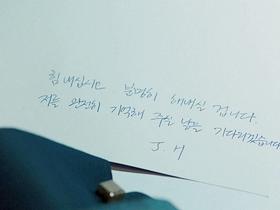 힘 내십시오 분명히 해내실 겁니다.
저를 완전히 기억해 주실 날을 기다리겠습니다
J. H